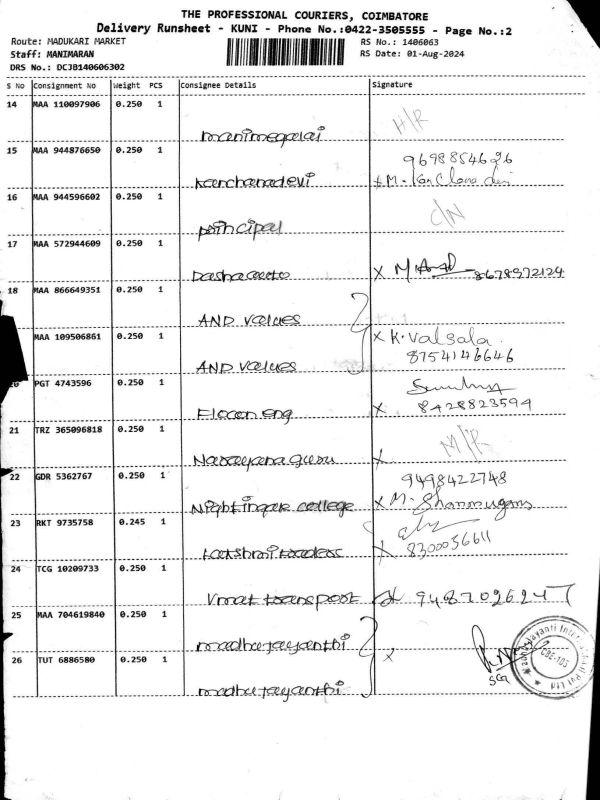 THE PROFESSIONAL COURIERS, COIMBATORE
Delivery Runsheet - KUNI - Phone No.:0422-3505555 - Page No.:2
Route: MADUKARI MARKET
RS No.: 1406063
Staff: MANIMARAN
RS Date: 01-Aug-2024
DRS No.: DCJB140606302
S No Consignment No Weight PCS Consignee Details Signature
14 MAA 110097906 0.250 1
manimegalai H/R
15 MAA 944876650 0.250 1 9698854626
Kanchanadevi
16 MAA 944596602 0.250 1
principal C/N
17 MAA 572944609 0.250 1
Dasha auto x 8678972124
18 MAA 866649351 0.250 1
AND values
MAA 109506861 0.250 1 x K. Valsala
AND values 8754146646
20 PGT 4743596 0.250 1
x 8428823594
21 TRZ 365096818 0.250 1 M/R
Narayana guru x
22 GDR 5362767 0.250 1 9498422748
Nightingale college x M. Shanmugam
23 RKT 9735758 0.245 1
Lakshmi traders x 8300056611
24 TCG 10209733 0.250 1
Vmat transport 9487026247
25 MAA 704619840 0.250 1
madhu jayanthi
26 TUT 6886580 0.250 1 x
madhu jayanthi
Madhu Jayanti International Pvt Ltd
CBE-105